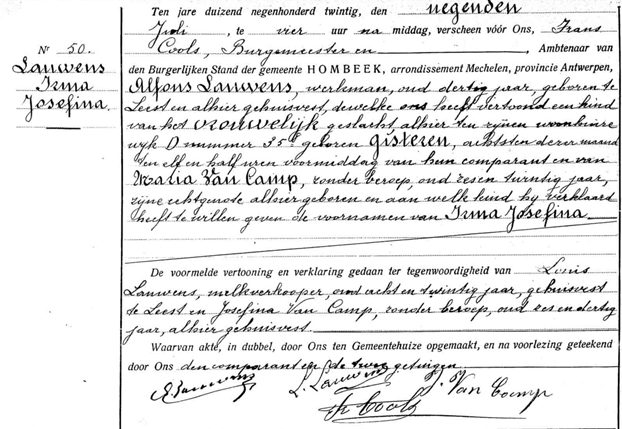 Nr 50.
Lauwens
Irma
Josefina.
Ten jare duizend negenhonderd twintig, den negenden
Juli, te vier uur na middag, verscheen vóór Ons, Frans
Cools, Burgemeester en Ambtenaar van
den Burgerlijken Stand der gemeente HOMBEEK, arrondissement Mechelen, provincie Antwerpen,
Alfons Lauwens, werkman, oud dertig jaar, geboren te
Leest en alhier gehuisvest, dewelke ons heeft vertoond een kind
van het vrouwelijk geslacht, alhier ten zijnen woonhuize
wijk D nummer 35 geboren gisteren, achtsten dezer maand
ten elf en half uren voormiddag van hem comparant en van
Malia Van Camp, zonder beroep, oud zes en twintig jaar,
zijne echtgenote alhier geboren en aan welk kind hij verklaard
heeft te willen geven de voornamen van Irma Josefina
De voormelde vertooning en verklaring gedaan ter tegenwoordigheid van Louis
Lauwens, melkverkooper, oud acht en twintig jaar, gehuisvest
te Leest en Josefina Van Camp, zonder beroep, oud zes en dertig
jaar, alhier gehuisvest.
Waarvan akte, in dubbel, door Ons ten Gemeentehuize opgemaakt, en na voorlezing geteekend
door Ons den comparant en de twee getuigen
A. Lauwens L. Lauwens J. Van Camp
Fr Cools